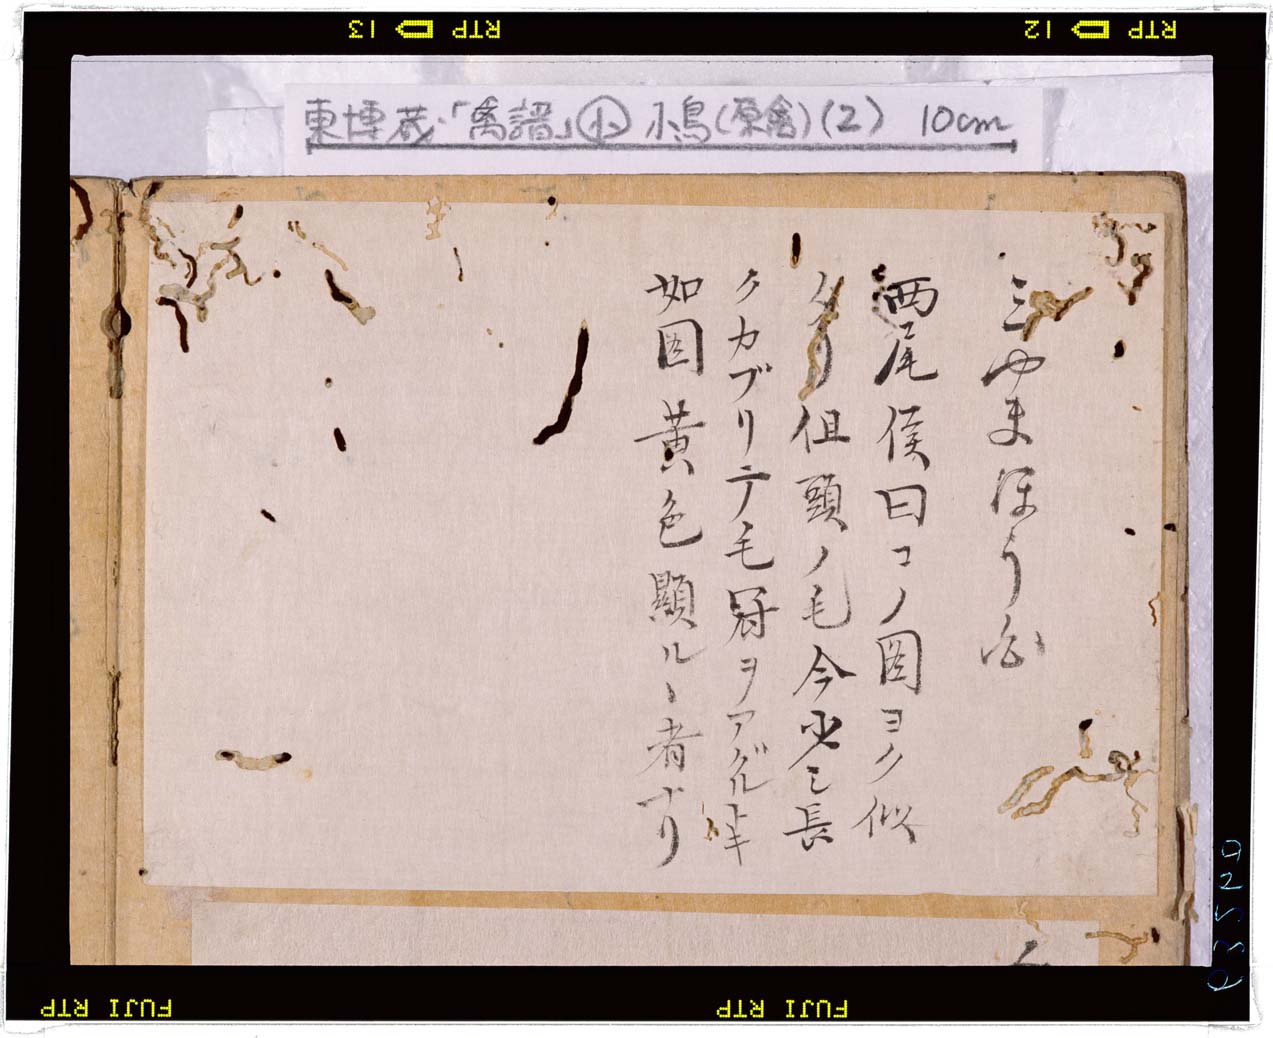 RTP 13
RTP 12
東博蔵・「禽譜」小 小鳥(原禽)(2) 10cm
三やまほう白
西尾侯曰コノ圖ヨク似
タリ但頭ノ毛今少シ長
クカブリテ毛冠ヲアグル〳〵キ
如圖黄色顯ルヽ者ナリ
FUJI RTP
FUJI RTP